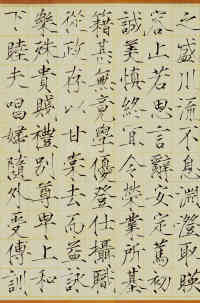 之盛川流不息淵澄取暎
容止若思言辭安定篤初
誠美慎終宜令榮業所基
籍甚無竟學優登仕攝職
從政存以甘棠去而益詠
樂殊貴賤禮別尊卑上和
下睦夫唱婦隨外受傅訓